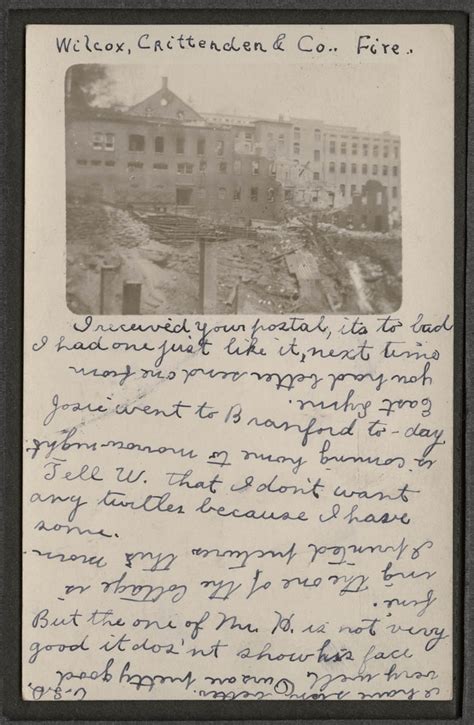 Wilcox, Crittenden & Co.. Fire.
I received your postal, its to bad
I had one just like it, next time
you had better send one from
East Lyme.
Josie went to Branford to-day
is coming home to morrow night.
Tell W. that I dont want
any turtles because I have
some.
I printed pictures this morn-
ing the one of the Cottage is
fine.
But the one of Mr. H. is not very
good it dos'nt show his face
very well pretty good